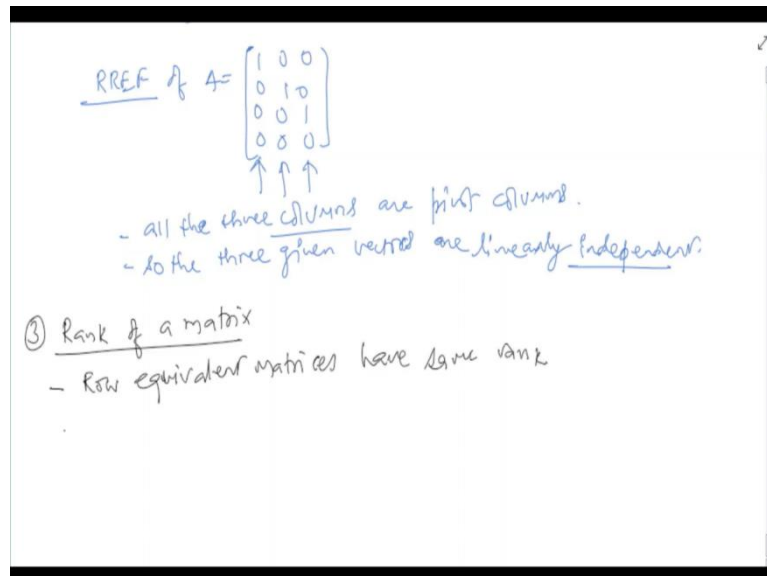 RREF of A = [1 0 0
0 1 0
0 0 1
0 0 0]
- all the three columns are pivot columns.
- so the three given vectors are linearly independent.
③ Rank of a matrix
- Row equivalent matrices have same rank